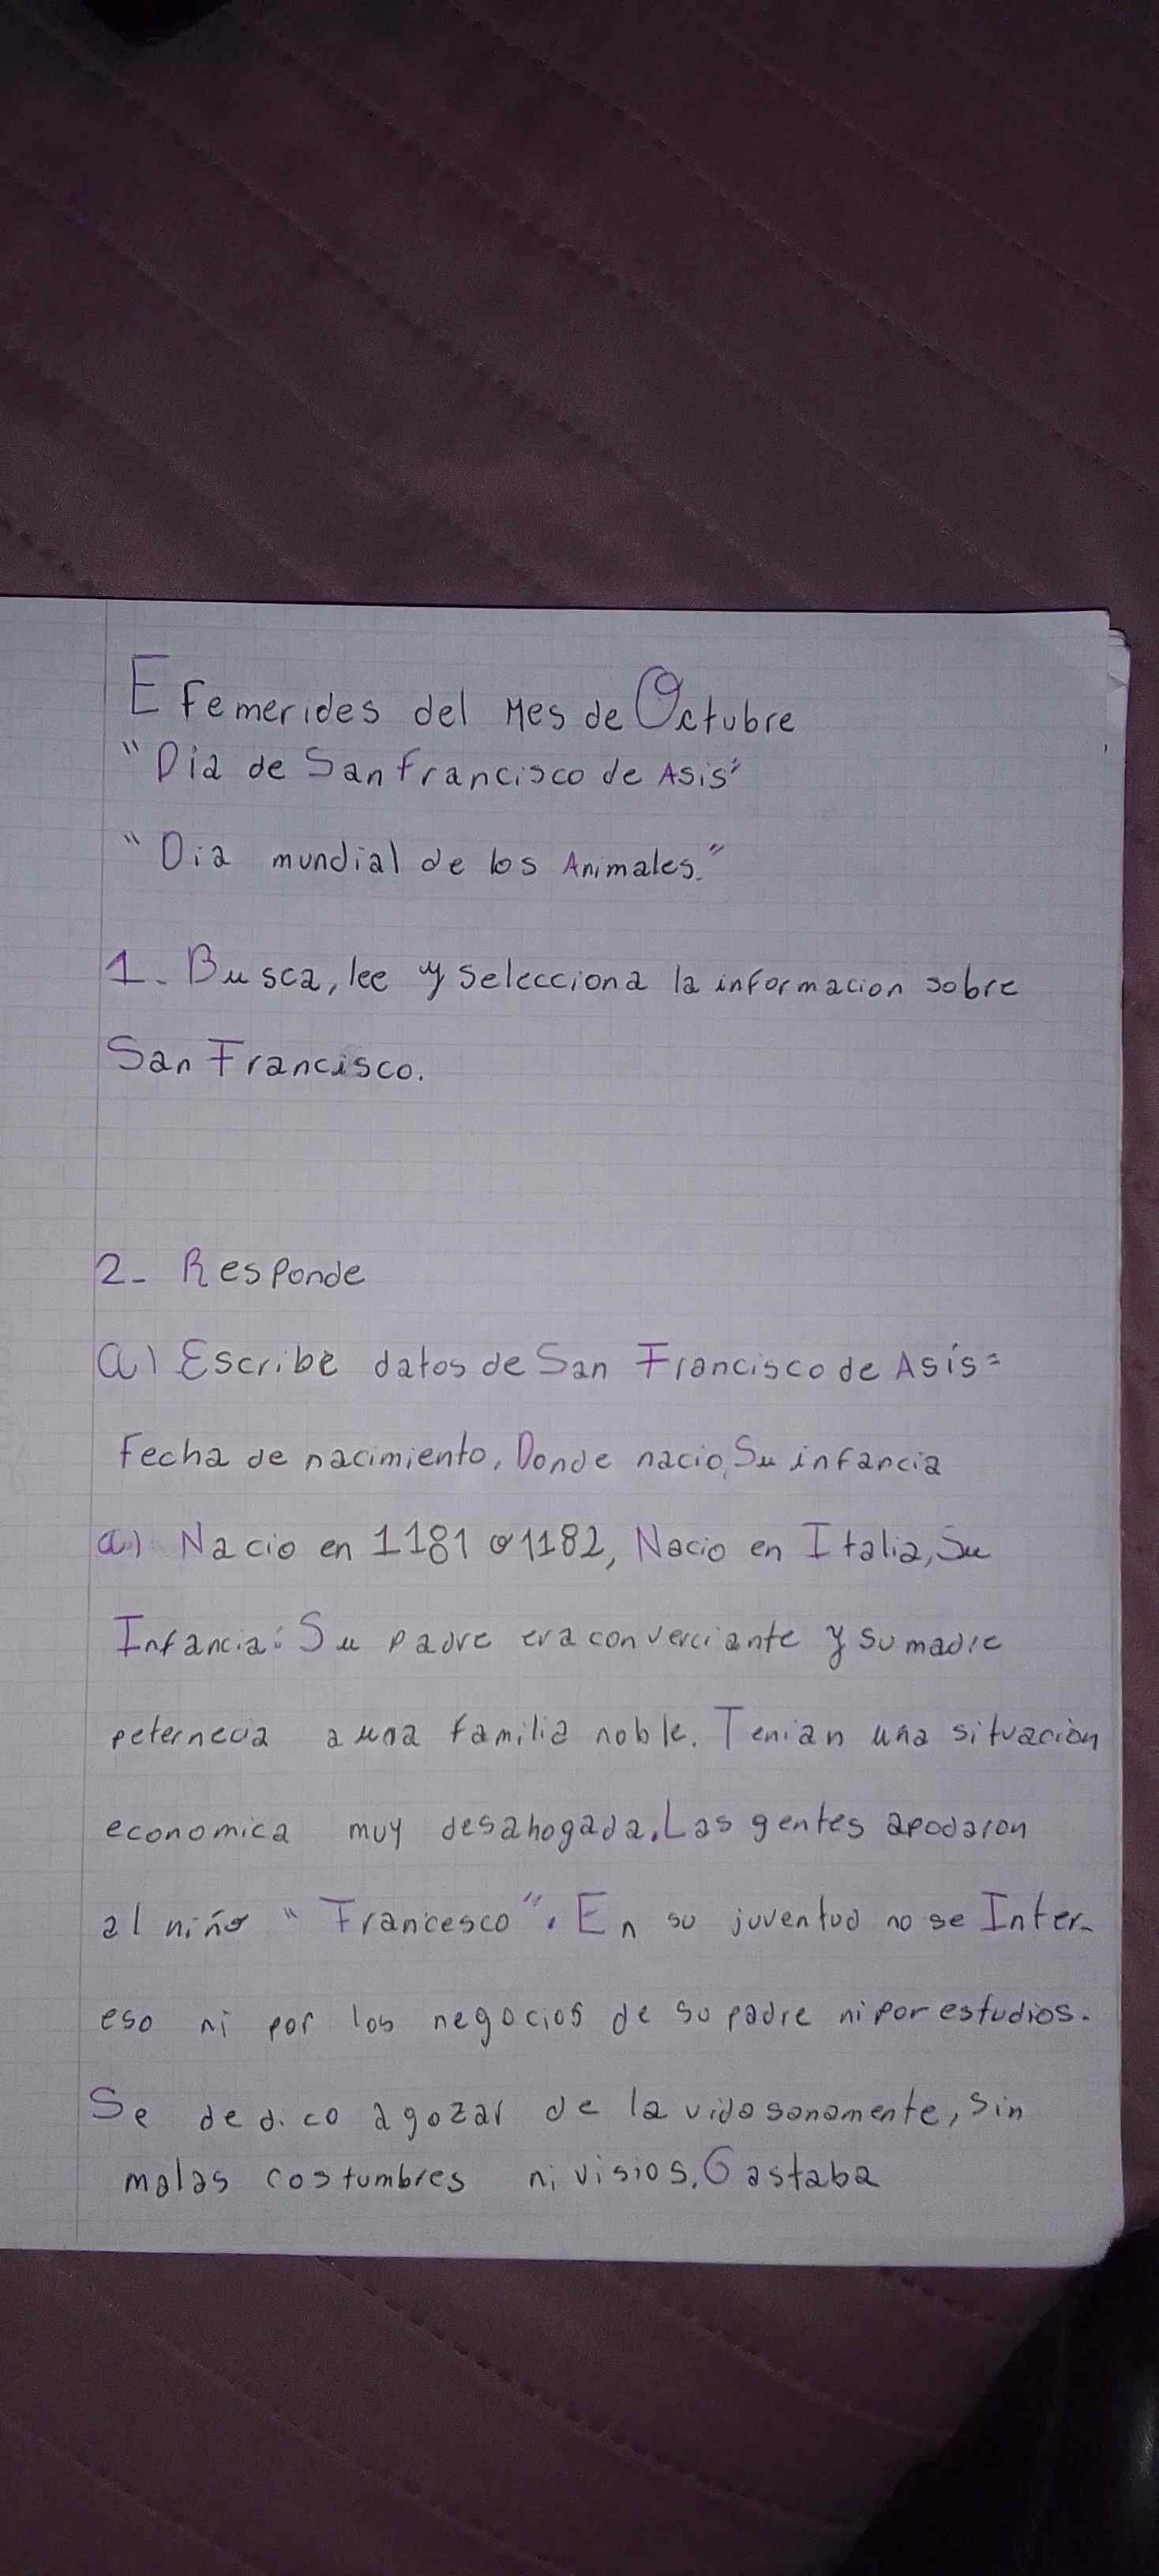 Efemerides del Mes de Octubre
"Dia de San francisco de Asis"
"Dia mundial de los Animales."
1. Busca, lee y selecciona la informacion sobre
San Francisco.
2- Responde
a) Escribe datos de San Francisco de Asís=
fecha de nacimiento, Donde nacio, Su infancia
a) Nacio en 1181 o 1182, Nacio en Italia, Su
Infancia: Su padre era converciante y su madre
peternecia a una familia noble. Tenian una situacion
economica muy desahogada. Las gentes apodaron
al niño "Francesco". En su juventud no se Inter-
eso ni por los negocios de su padre ni por estudios.
Se dedico a gozar de la vida sanamente, sin
malas costumbres ni visios. Gastaba